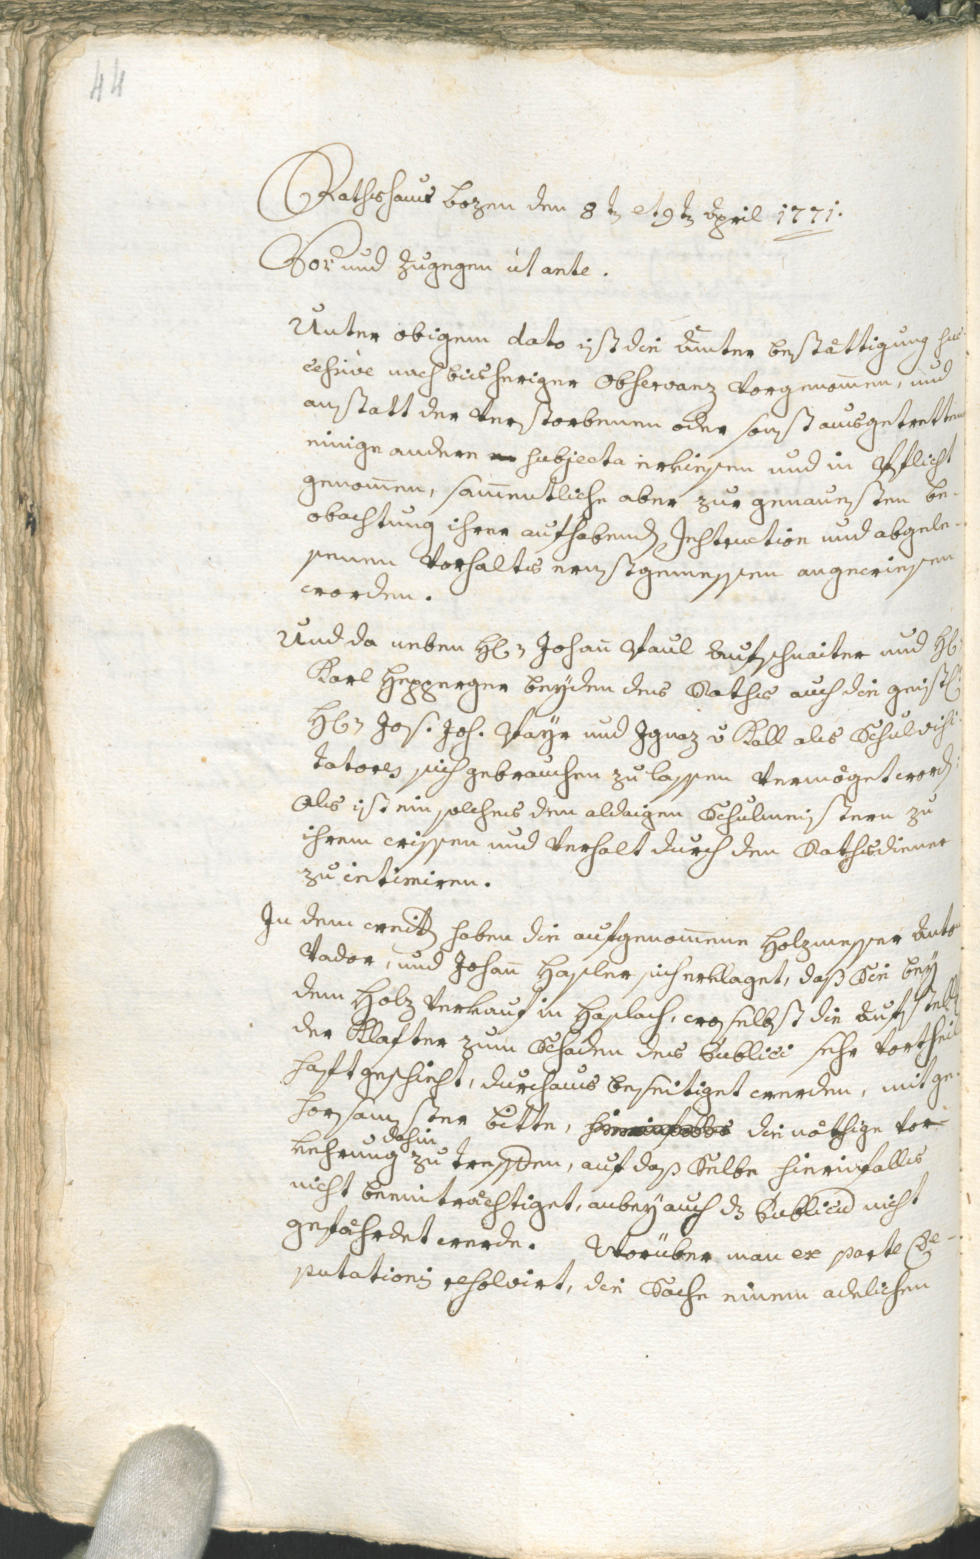 44
Rathshaus bozen den 8t et 9t April 1771.
Vor und zugegen ut ante.
Unter obigem dato ist die ämter bestättigung suc
cesive nach bisheriger observanz vorgenomen, und
anstatt der verstorbenen oder sonst ausgetretten
einige andere subjecta erkiesen und in Pflicht
genomen, sämentliche aber zur genauesten be-
obachtung ihrer aufhabend Instruction und abgele-
senen vorhalts ernstgemessen angewiesen
worden.
Und da neben H: Johan Paul Aufschnaiter und H:
Karl Hepperger beyden des Raths auch die geistl:
H: Jos. Joh. Payr und Ignaz v Kall als Schulvisi-
tatores sich gebrauchen zu lassen vermöget word:
Als ist ein solches den aldaigen Schulmeistern zu
ihrem wissen und verhalt durch den Rathsdiener
zu intimiren.
In dem haben die aufgenomene Holzmesser Anto
Vador, und Johan Hasler sich erklaget, daß Sie bey
dem Holz verkauf in Haslach, wo selbst die Aufstell
der Klafter zum Schaden des Publici sehr vortheil
haft geschieht, durchaus beseitiget werden, mit ge-
horsamster bitte, die nöthige vor-
kehrung dahin zu treffen, auf daß Selbe hierinfalls
nicht beeinträchtiget, anbey auch dz Publicum nicht
gefährdet werde. Worüber man ex parte De-
putationis resolvirt, die Sache einem adelichen